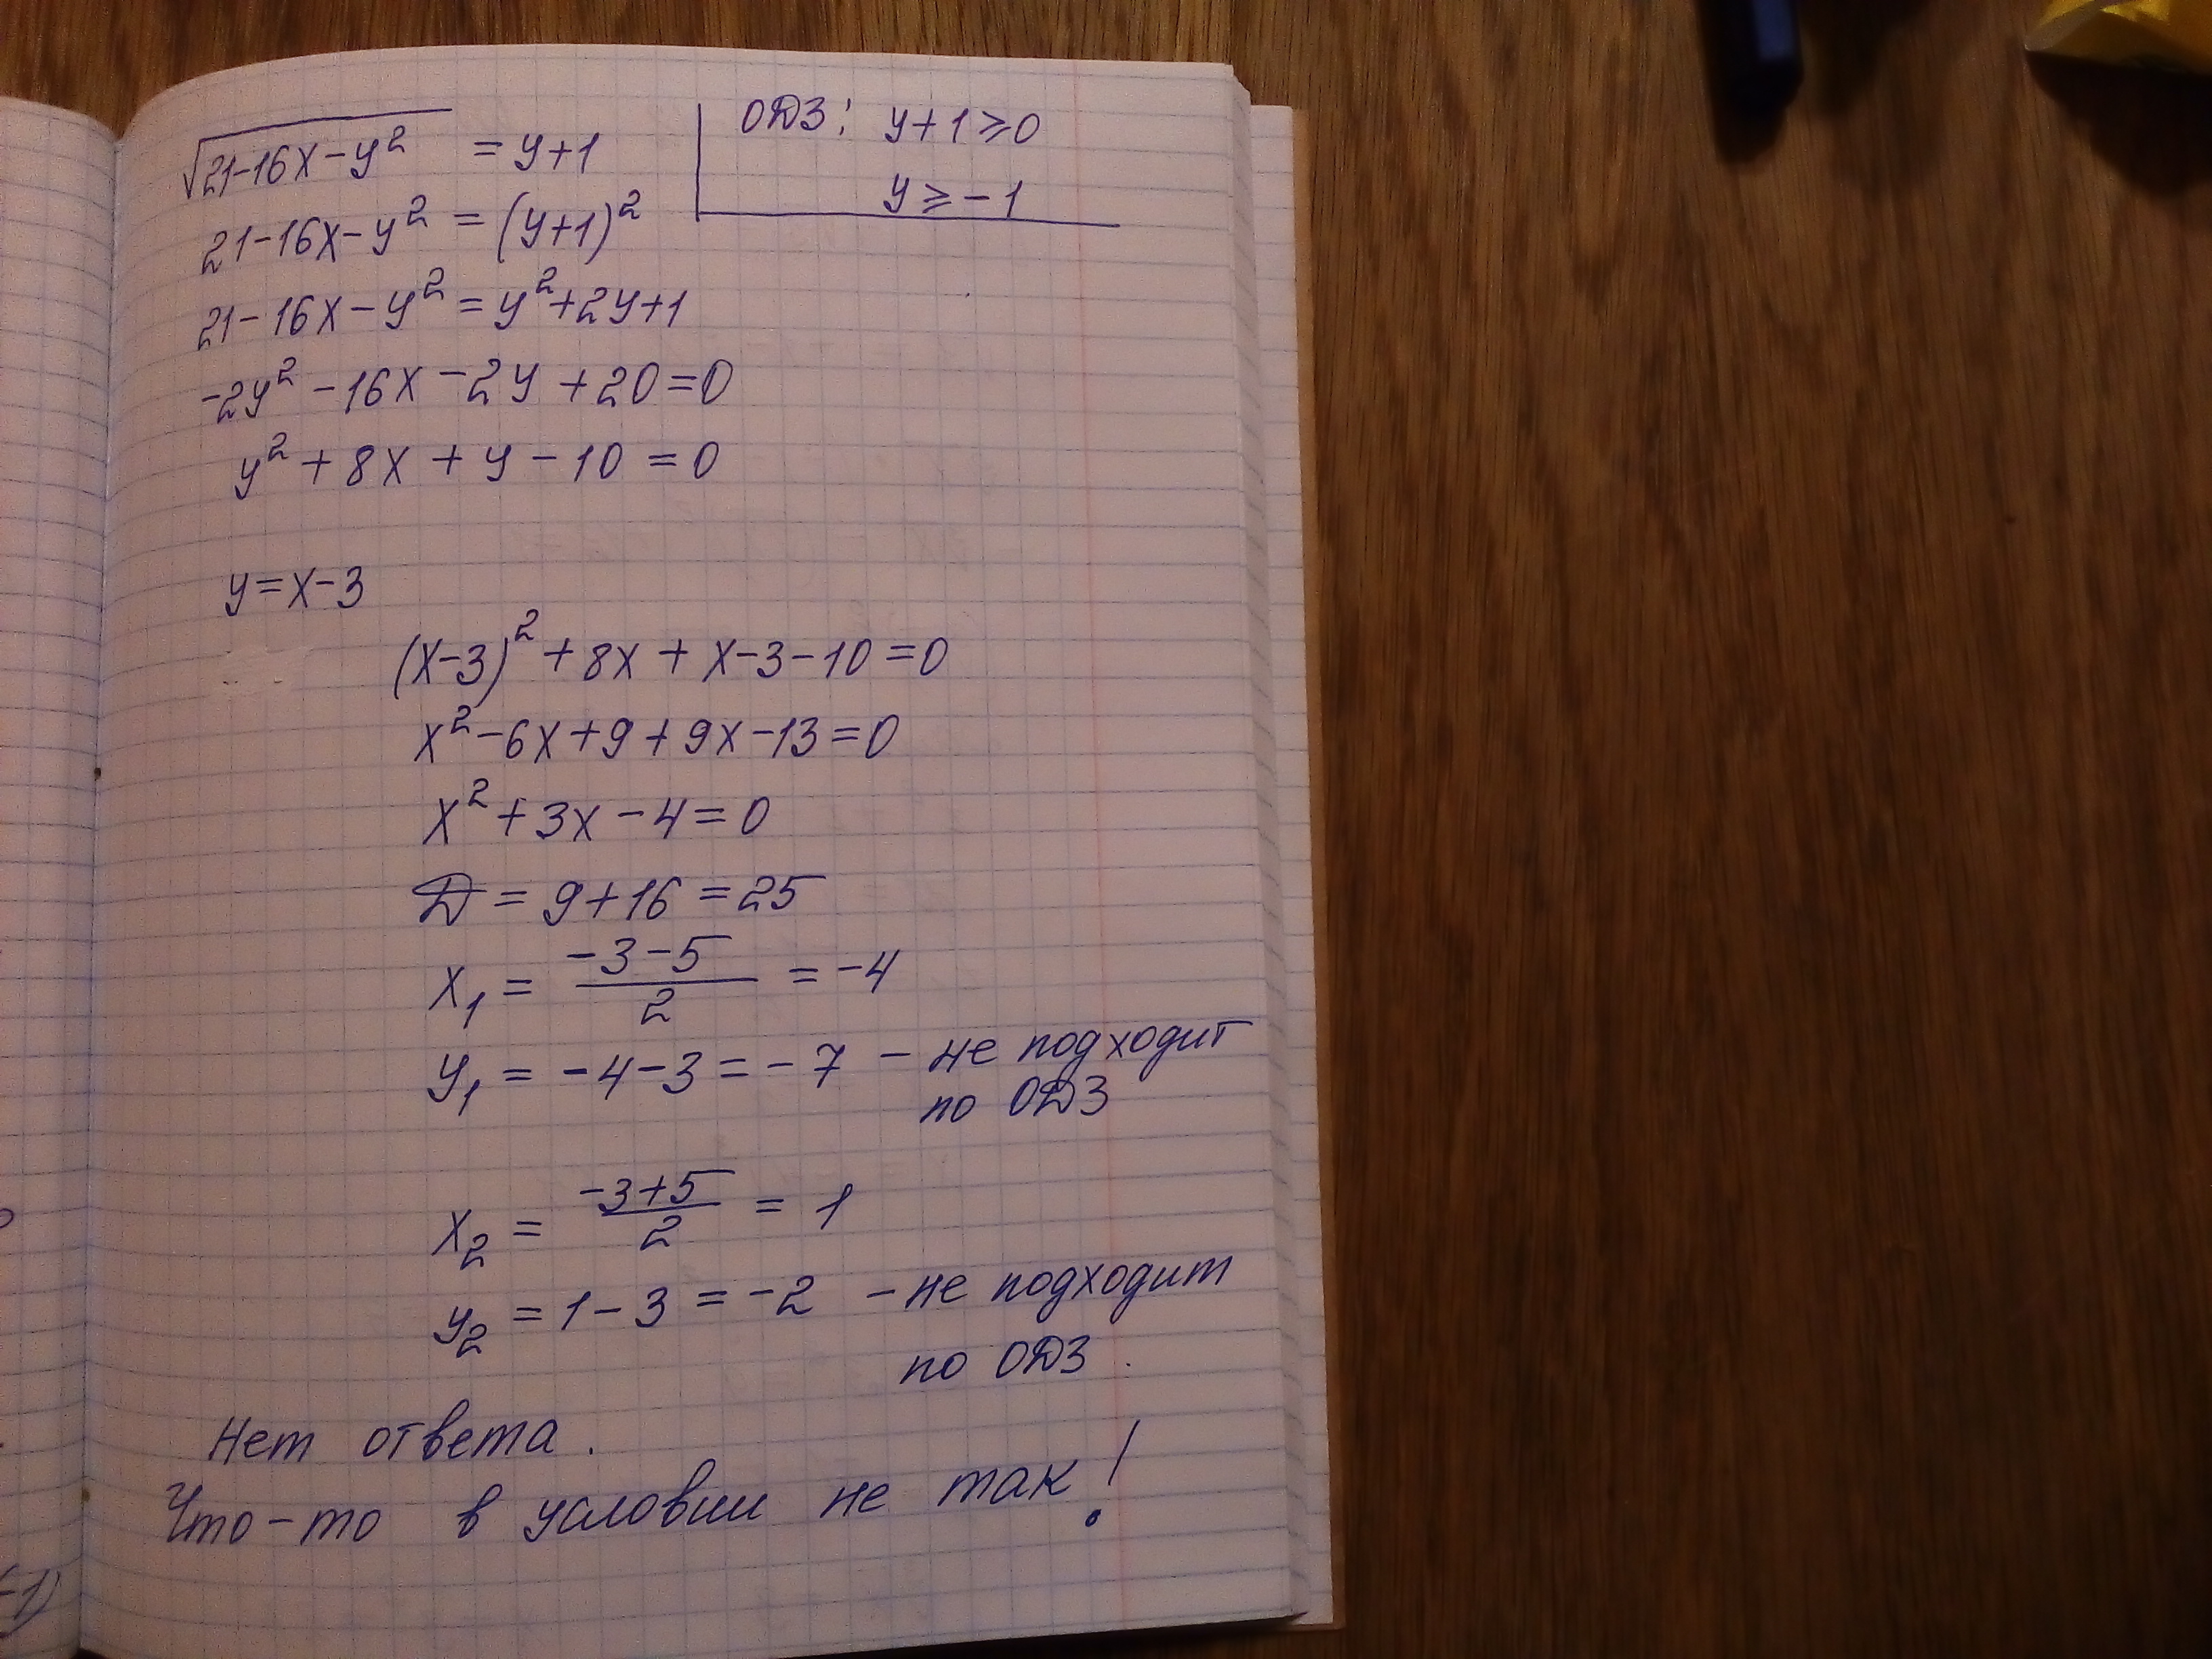 √21-16x-y² = y+1
ОДЗ: y+1≥0
y≥-1
21-16x-y² = (y+1)²
21-16x-y² = y²+2y+1
-2y²-16x-2y+20=0
y²+8x+y-10=0
y=x-3
(x-3)²+8x+x-3-10=0
x²-6x+9+9x-13=0
x²+3x-4=0
Д=9+16=25
x₁ = (-3-5)/2 = -4
y₁ = -4-3=-7 - не подходит
по ОДЗ
x₂ = (-3+5)/2 = 1
y₂ = 1-3 = -2 - не подходит
по ОДЗ.
Нет ответа.
Что-то в условии не так!
-1)